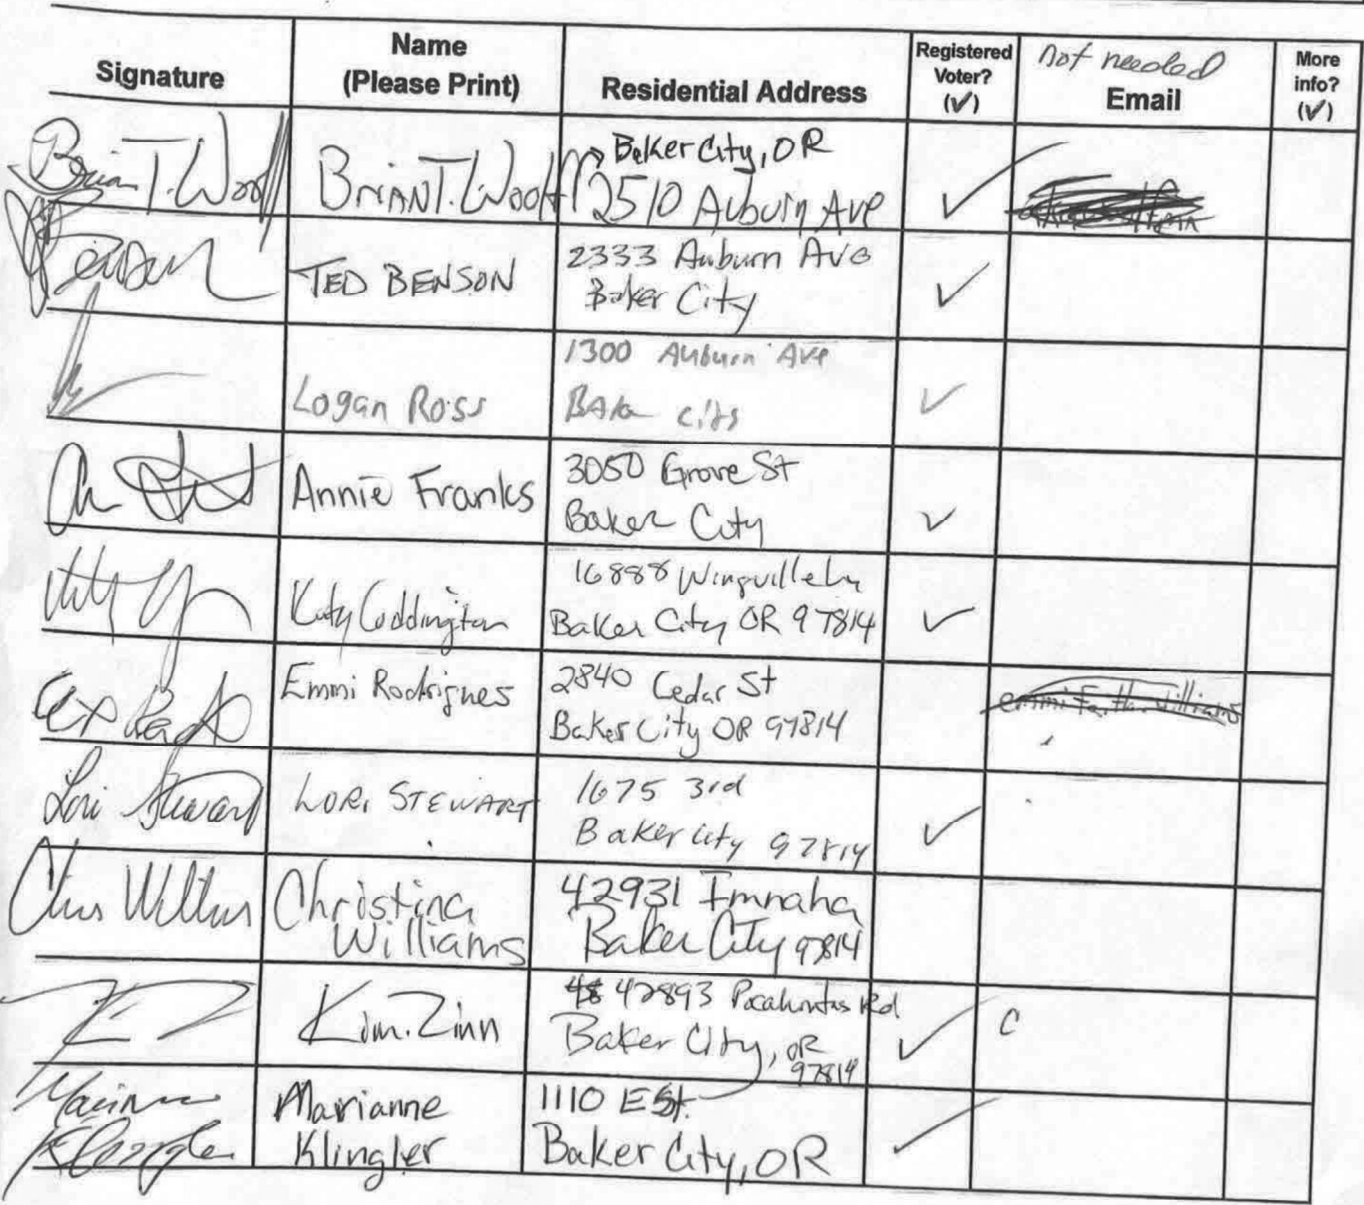 Signature
Name
(Please Print)
Residential Address
Registered
Voter?
(✓)
not needed
Email
More
info?
(✓)
Brian T. Woolf
BriANT. Woolf
Baker City, OR
2510 Auburn Ave
✓
Benson
TED BENSON
2333 Auburn Ave
Baker City
✓
Logan Ross
1300 Auburn Ave
✓
Annie Franks
3050 Grove St
Baker City
✓
Katy Coddington
16888 Wingville Ln
Baker City OR 97814
✓
Emmi Rodrigues
2840 Cedar St
Baker City OR 97814
Lori Stewart
LORi STEWART
1675 3rd
Baker City 97814
✓
Christina
Williams
42931 Imnaha
Baker City 97814
Kim. Zinn
48 42893 Pocahontas Rd
Baker City, OR
97814
✓
C
Marianne
Klingler
Marianne
Klingler
1110 E St.
Baker City, OR
✓